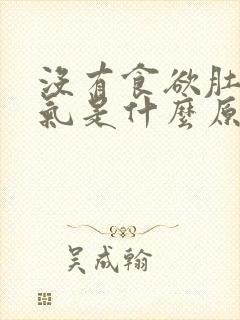 没有食欲肚
氣是什麼原
吴成翰